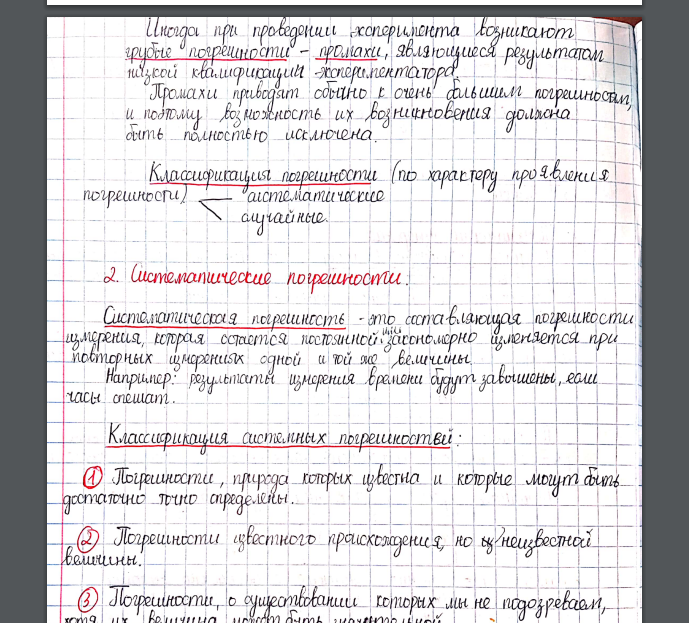 Иногда при проведении эксперимента возникают
грубые погрешности - промахи, являющиеся результатом
низкой квалификации экспериментатора.
Промахи приводят обычно к очень большим погрешностям,
и поэтому возможность их возникновения должна
быть полностью исключена.
Классификация погрешности (по характеру проявления
погрешности)
систематические
случайные.
2. Систематические погрешности.
Систематическая погрешность - это составляющая погрешности
измерения, которая остается постоянной или закономерно изменяется при
повторных измерениях одной и той же величины.
Например: результаты измерения времени будут завышены, если
часы спешат.
Классификация системных погрешностей:
1 Погрешности, природа которых известна и которые могут быть
достаточно точно определены.
2 Погрешности известного происхождения, но неизвестной
величины.
3 Погрешности, о существовании которых мы не подозреваем,
хотя их величина может быть значительной